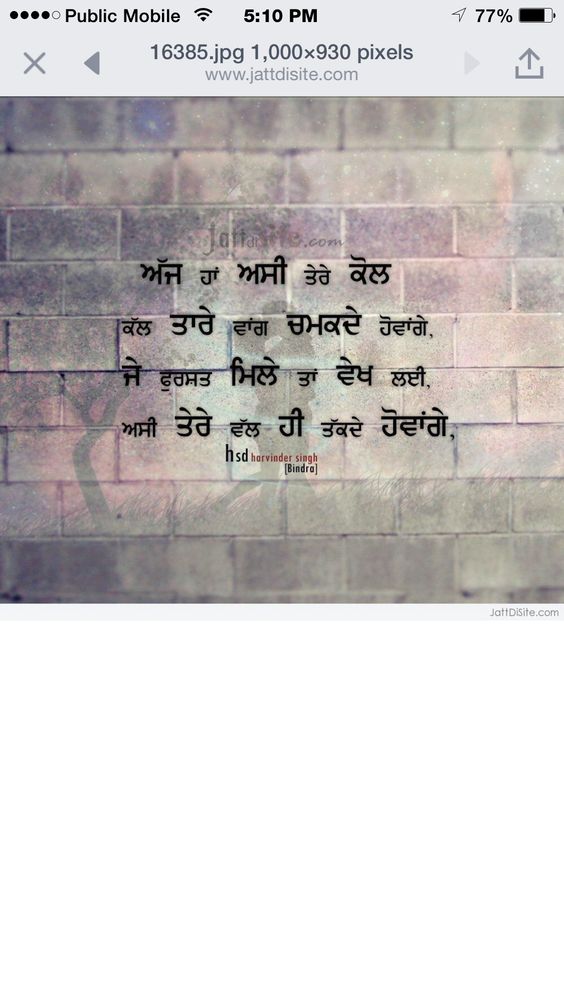 Public Mobile 5:10 PM 77%
16385.jpg 1,000×930 pixels
www.jattdisite.com
JattDiSite.com
ਅੱਜ ਹਾਂ ਅਸੀ ਤੇਰੇ ਕੋਲ
ਕੱਲ ਤਾਰੇ ਵਾਂਗ ਚਮਕਦੇ ਹੋਵਾਂਗੇ,
ਜੇ ਫੁਰਸ਼ਤ ਮਿਲੇ ਤਾਂ ਵੇਖ ਲਈ,
ਅਸੀ ਤੇਰੇ ਵੱਲ ਹੀ ਤੱਕਦੇ ਹੋਵਾਂਗੇ,
hsd harvinder singh
[Bindra]
JattDiSite.com